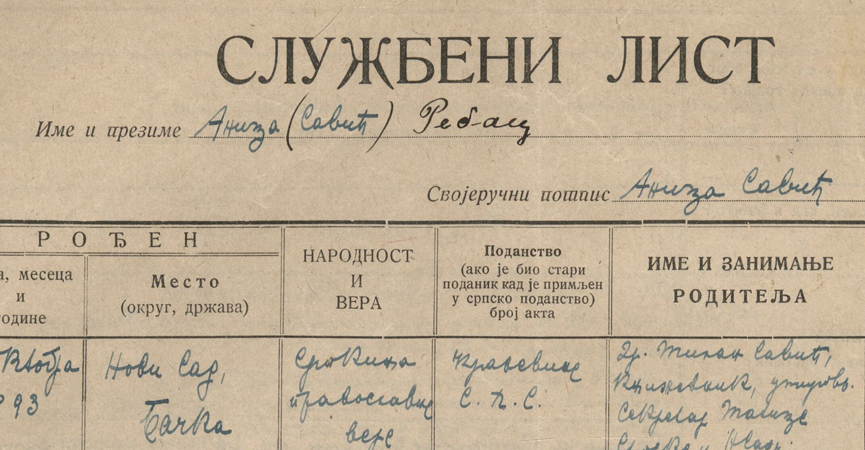 СЛУЖБЕНИ ЛИСТ
Име и презиме Аница (Савић) Ребац
Својеручни потпис Аница Савић
РОЂЕН
а, месеца
и
одине
Место
(округ, држава)
НАРОДНОСТ
И
ВЕРА
Поданство
(ако је био стари
поданик кад је примљен
у српско поданство)
број акта
ИМЕ И ЗАНИМАЊЕ
РОДИТЕЉА
93
Нови Сад,
Бачка
Српкиња
православне
вере
Краљевине
С. Х. С.
Др. Милан Савић,
књижевник,
секретар Матице